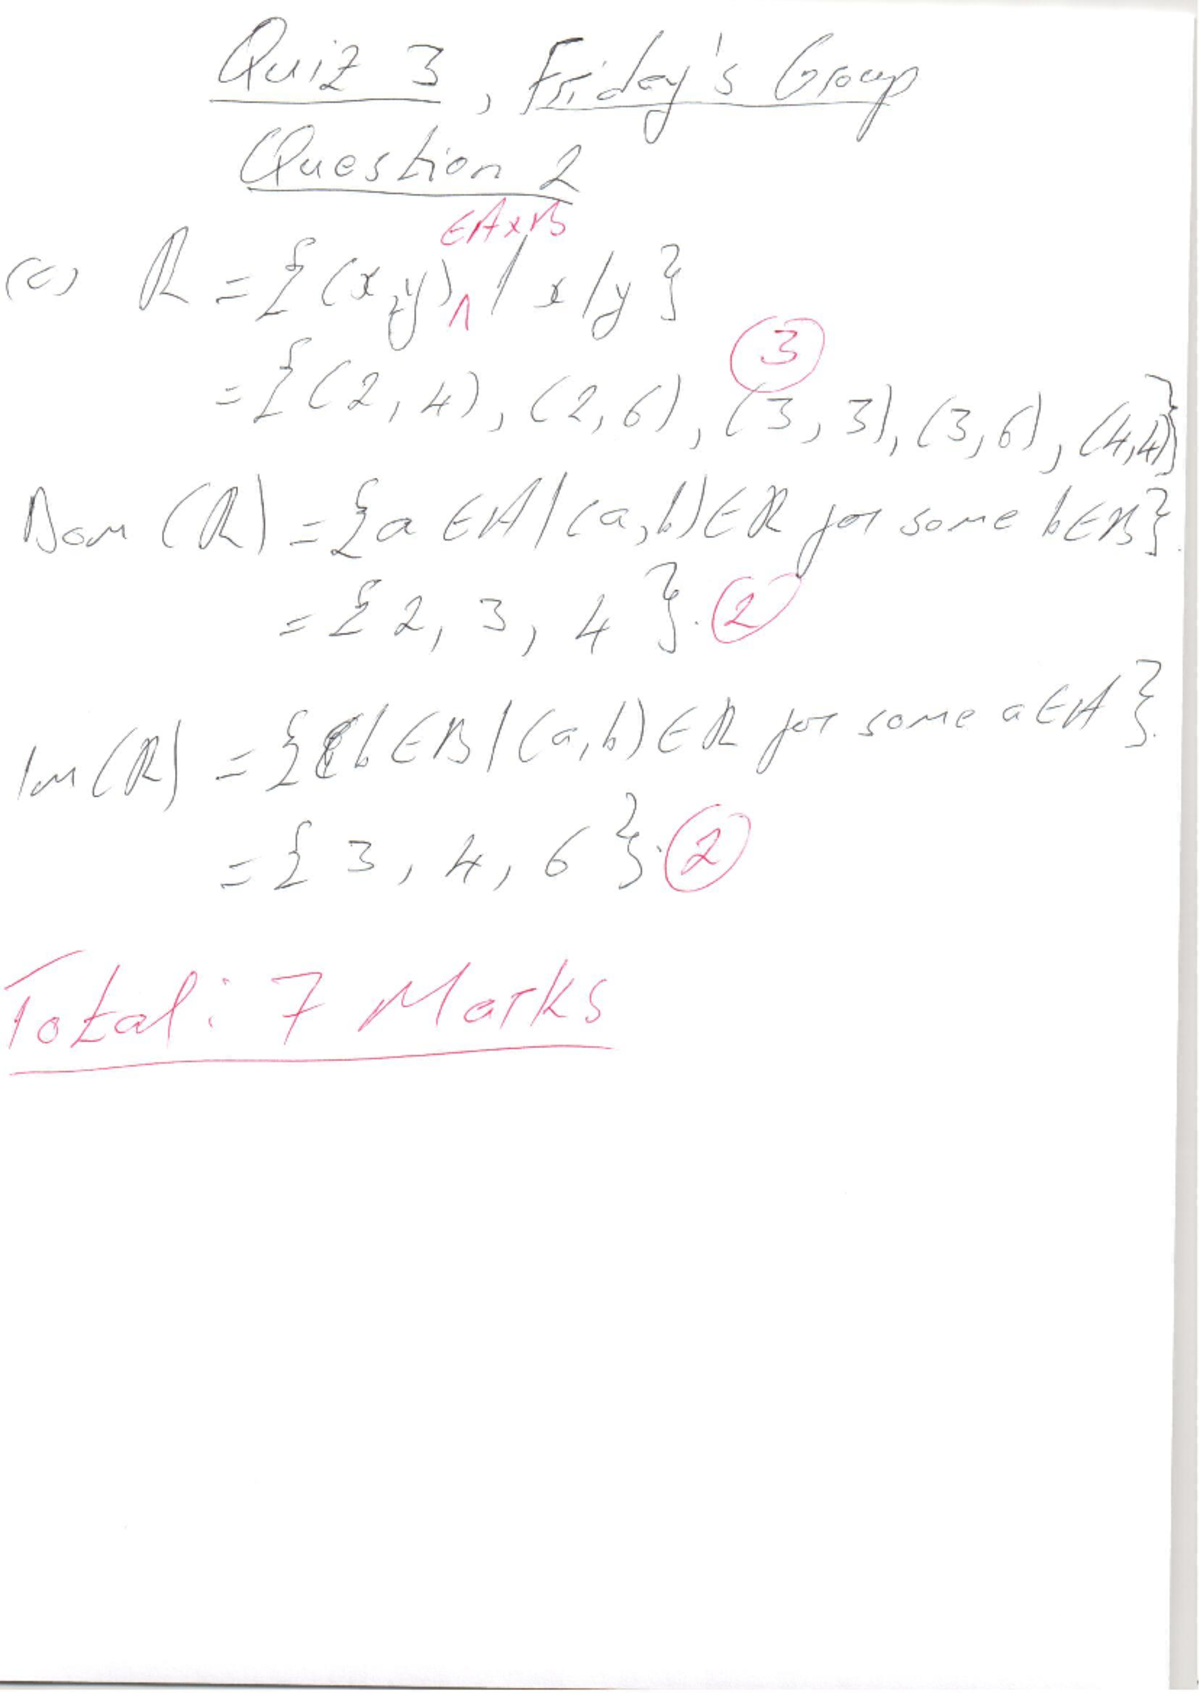 Quiz 3, Friday's Group
Question 2
∈A×B
(c) R = {(x,y)∧ / x/y}
③
= {(2,4), (2,6), (3,3), (3,6), (4,4)}
Dom (R) = {a ∈ A / (a,b) ∈ R for some b ∈ B}.
= {2, 3, 4}. ②
Im (R) = {b ∈ B / (a,b) ∈ R for some a ∈ A}.
= {3, 4, 6}. ②
Total: 7 Marks